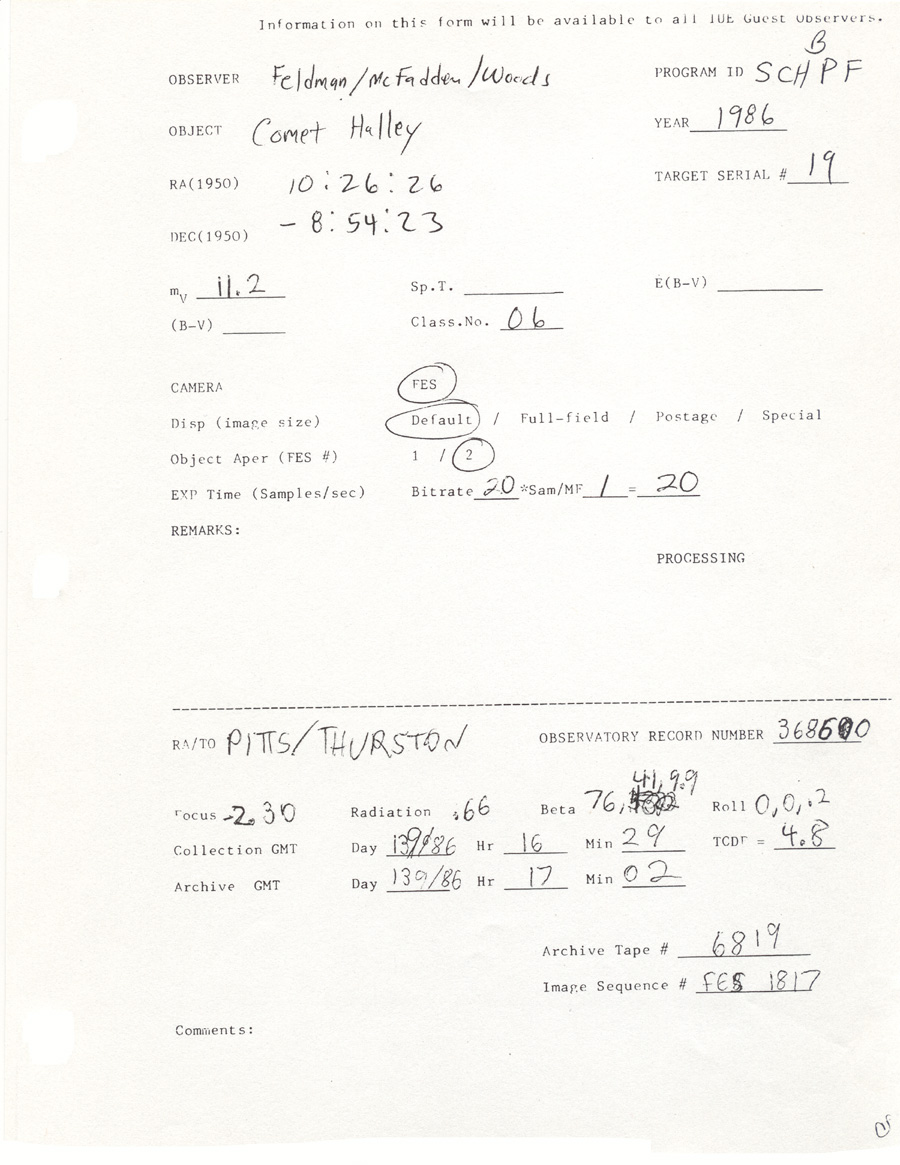 Information on this form will be available to all IUE Guest Observers.
B
OBSERVER Feldman/McFadden/Woods PROGRAM ID SCHPF
OBJECT Comet Halley YEAR 1986
RA(1950) 10:26:26 TARGET SERIAL # 19
DEC(1950) - 8:54:23
mV 11.2 Sp.T. E(B-V)
(B-V) Class.No. 06
CAMERA FES
Disp (image size) Default / Full-field / Postage / Special
Object Aper (FES #) 1 / 2
EXP Time (Samples/sec) Bitrate 20 *Sam/MF 1 = 20
REMARKS:
PROCESSING
RA/TO PITTS/THURSTON OBSERVATORY RECORD NUMBER
41, 9.9
Focus -2.30 Radiation .66 Beta 76, Roll 0,0,.2
Collection GMT Day 139/86 Hr 16 Min 29 TCDF = 4.8
Archive GMT Day 139/86 Hr 17 Min 02
Archive Tape # 6819
Image Sequence # FES 1817
Comments: